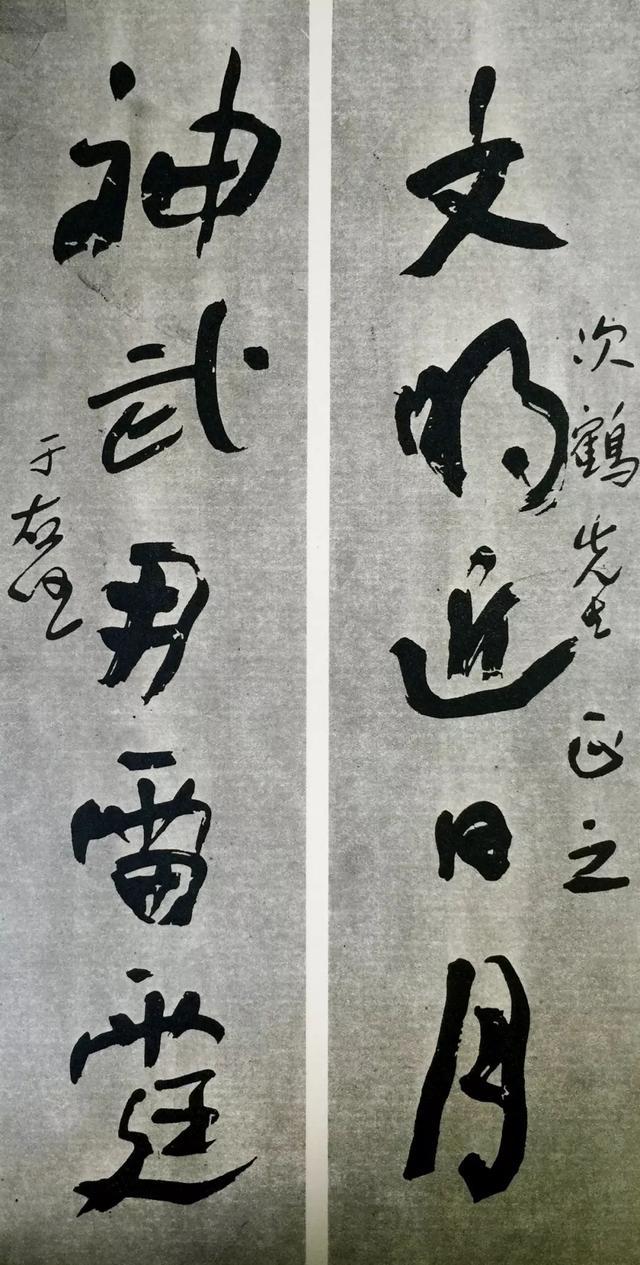 次鶴先生正之
文明近日月
神武用雷霆
于右任